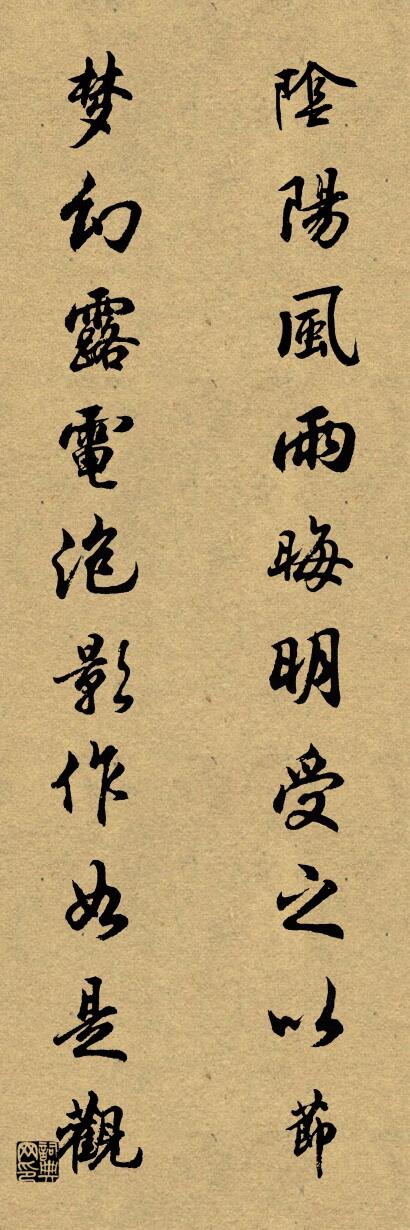 陰陽風雨晦明受之以節
梦幻露電泡影作如是觀
詞典网印